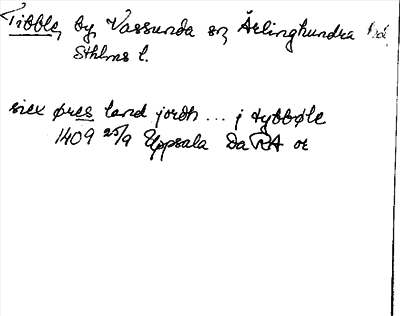 Tibble, by, Vassunda sn, Ärlinghundra hd,
Sthlms l.
siex øres land jordh ... j tybbøle
1409 25/9 Uppsala DaRA or